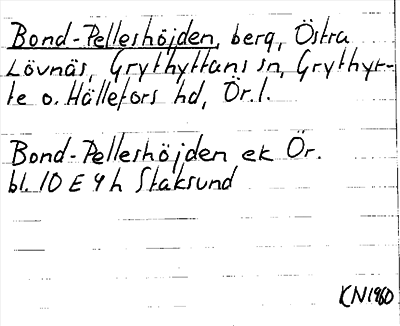 Bond-Pelleshöjden, berg, Östra
Lövnäs, Grythyttans sn, Grythyt-
te o. Hällefors hd, Ör.l.
Bond-Pelleshöjden ek Ör.
bl. 10 E 4 h Staksund
KN 1960